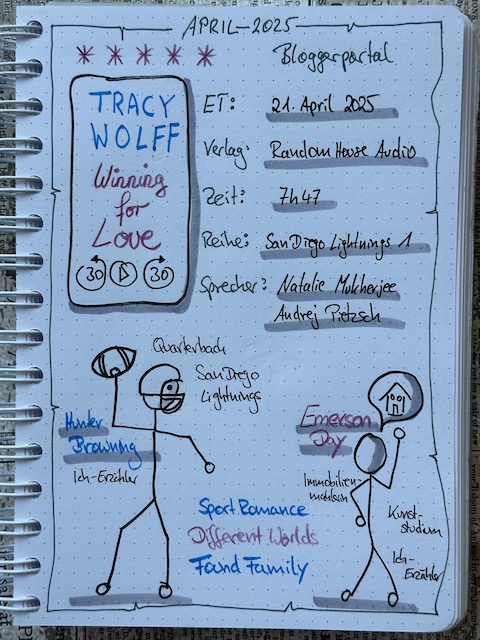 APRIL-2025
* * * * *
Bloggerportal
TRACY
WOLFF
Winning
for
Love
30 30
ET: 21. April 2025
Verlag: Random House Audio
Zeit: 7h47
Reihe: San Diego Lightnings 1
Sprecher: Natalie Mukherjee
Andrej Pietzsch
Quarterback
San Diego
Lightnings
Hunter
Browning
Ich-Erzähler
Sport Romance
Different Worlds
Found Family
Emerson
Day
Immobilien-
maklerin
Kunst-
studium
Ich-
Erzähler